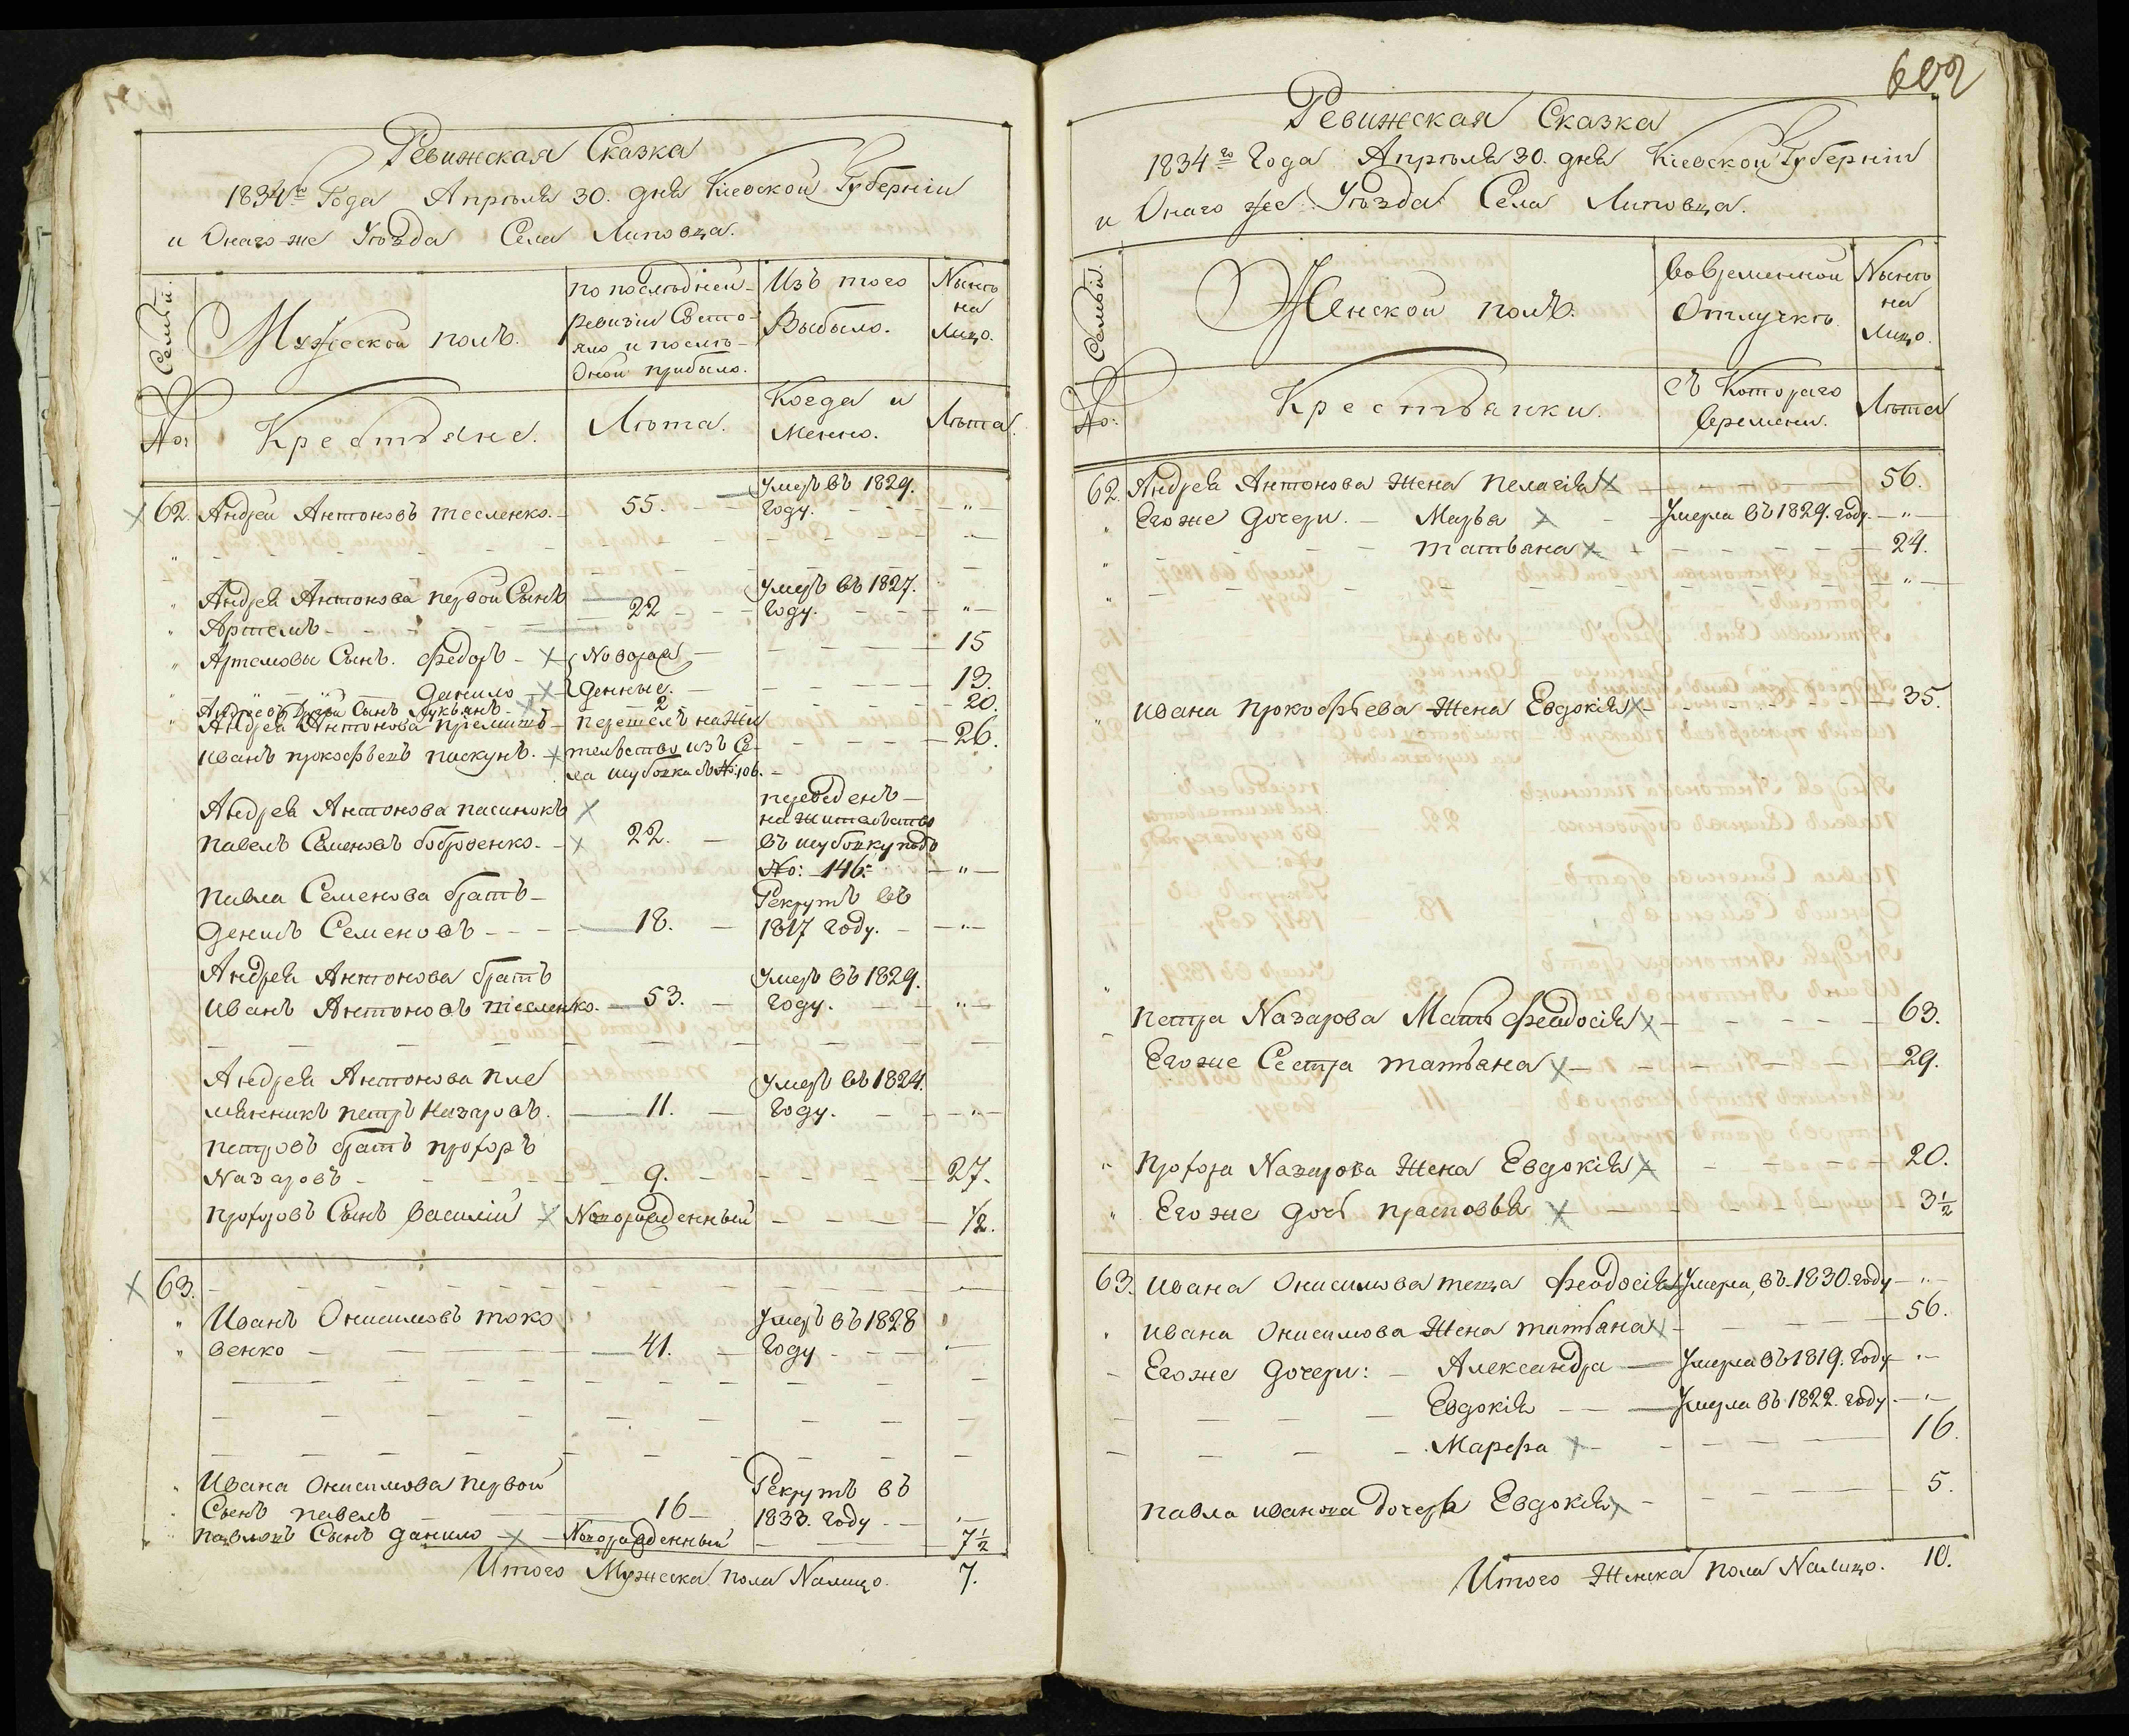 Ревижская Сказка
1834го Года Апреля 30. дня Кіевской Губерніи
и Онаго же Уѣзда Села Липовца.
Семьи.
№:
Мужеской полъ.
по послѣдней
ревизіи Состо-
яло и послѣ
Оной прибыло.
Изъ того
Выбыло.
Нынѣ
на
Лицо.
Крестьяне.
Лѣта.
Когда и
Менно.
Лѣта.
62. Андрей Антоновъ тесленко. 55. Умеръ въ 1829.
году. "
Андрея Антонова первой Сынъ
Артемъ 22 Умеръ въ 1827.
году. "
Артемовы Сынъ. Федоръ Новорож 15
Данило денные. 13.
Андреевъ Сынъ Лукьянъ 2 20.
Андрея Антонова пріемышъ перешелъ на жи
Иванъ прокофьевъ пискунъ. тельство изъ Се- 26.
ла шубовки съ №: 106.
Андрея Антонова пасинокъ переведенъ
павелъ Семеновъ бобровенко. 22. на жительство
въ шубовку подъ
№: 146. "
павла Семенова братъ Рекрутъ въ
денисъ Семеновъ 18. 1817 году. "
Андрея Антонова братъ Умеръ въ 1829.
Иванъ Антоновъ тесленко. 53. году. "
Андрея Антонова пле Умеръ въ 1824.
мянникъ петръ Назаровъ. 11. году. "
петровъ братъ прохоръ
Назаровъ 9. 27.
прохоровъ Сынъ Василій Новорожденный 1/2.
63.
Иванъ Онисимовъ токо Умеръ въ 1828
венко 41. году
Ивана Онисимова первой Рекрутъ въ
Сынъ павелъ 16 1833. году
павловъ Сынъ данило Новорожденный 7 1/2
Итого Мужеска пола Налицо. 7.
602
Ревижская Сказка
1834го Года Апреля 30. дня Кіевской Губерніи
и Онаго же Уѣзда Села Липовца.
Семьи.
№:
Женской полъ.
Вовременной
Отлучкѣ.
Нынѣ
на
Лицо.
Крестьянки.
Съ Котораго
Времени.
Лѣта
62. Андрея Антонова Жена пелагія 56.
Его же дочери. Марья Умерла въ 1829. году. "
татьяна 24.
"
Ивана прокофьева Жена Евдокія 35.
петра Назарова Мать Феодосія 63.
Его же Сестра татьяна 29.
прохора Назарова Жена Евдокія 20.
Его же дочь прасковья 3 1/2
63. Ивана Онисимова теща Феодосія Умерла, въ 1830. году "
Ивана Онисимова Жена татьяна 56.
Его же дочери: Александра Умерла въ 1819. году
Евдокія Умерла въ 1822. году
Марфа 16.
павла иванова дочерь Евдокія 5.
Итого Женска пола Налицо. 10.